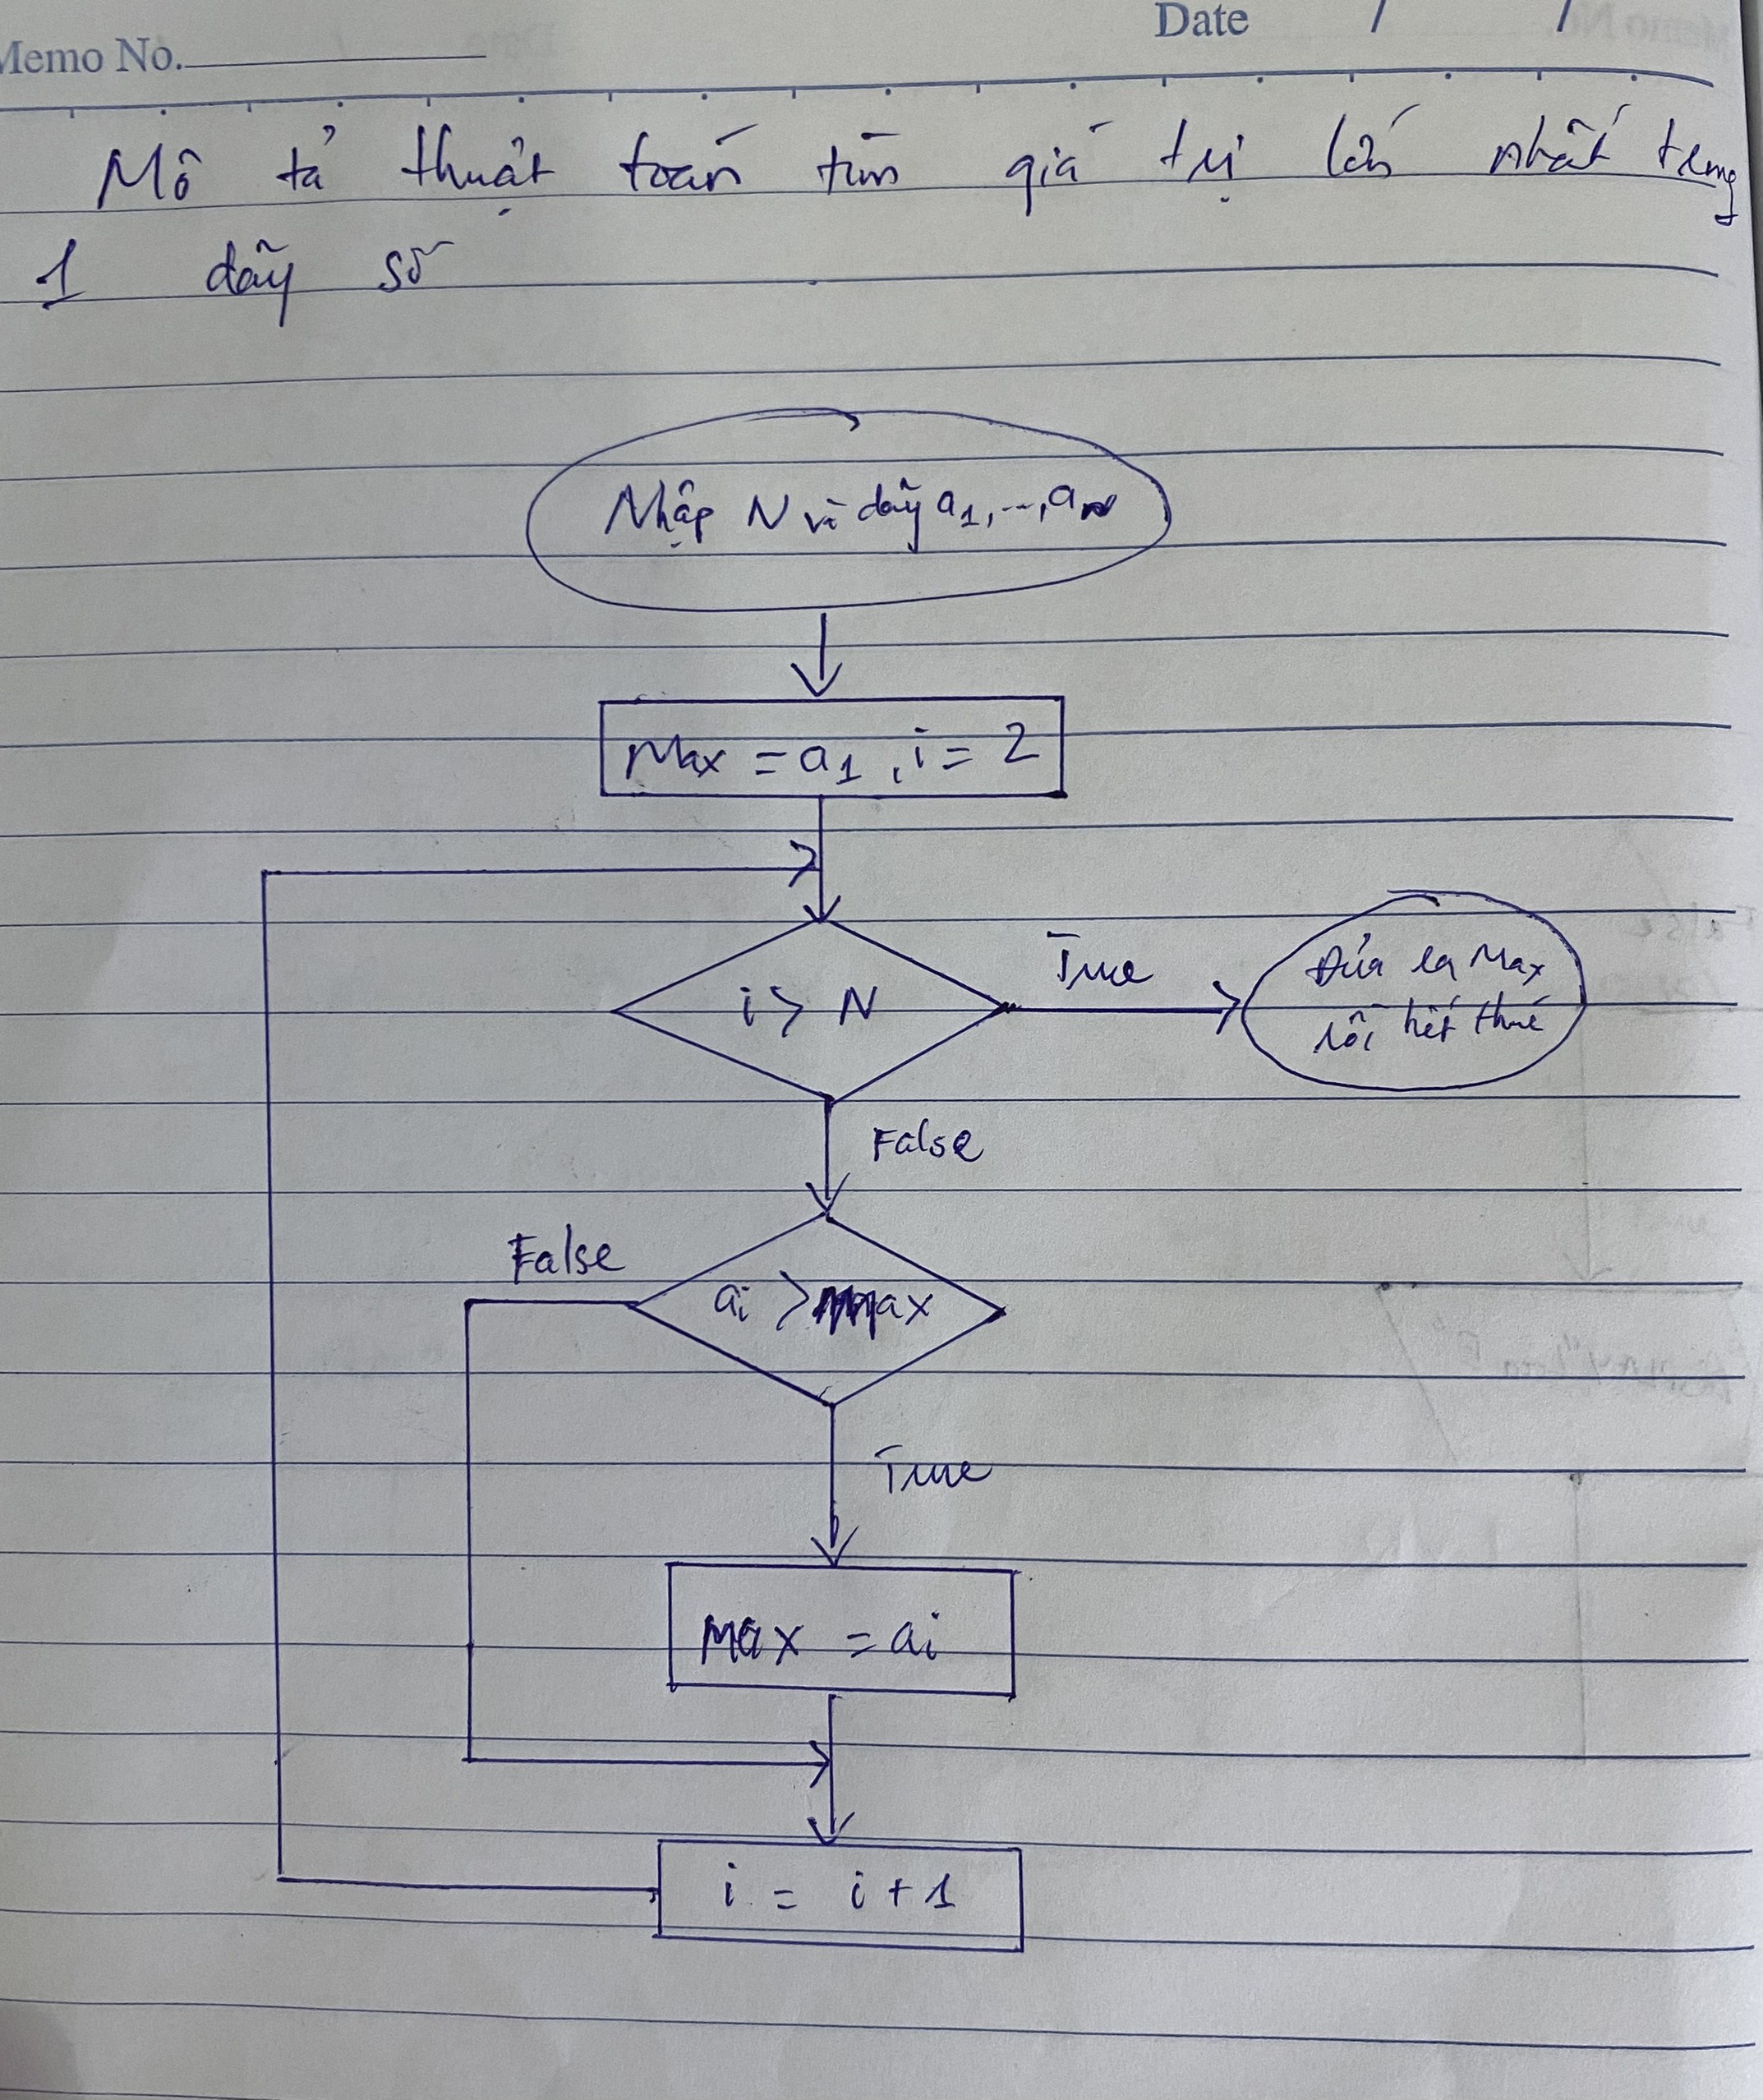 Date / /
Memo No.
Mô tả thuật toán tìm giá trị lớn nhất trong
1 dãy số
Nhập N và dãy a1, ..., aN
Max = a1, i = 2
i > N
True
Đưa ra Max
rồi kết thúc
False
False
ai > max
True
Max = ai
i = i + 1